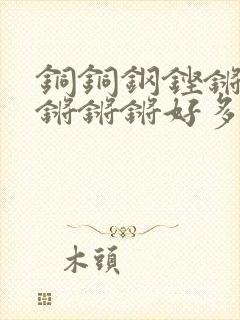 銅銅鋼鏗鏘
鏘鏘鏘好多
木頭